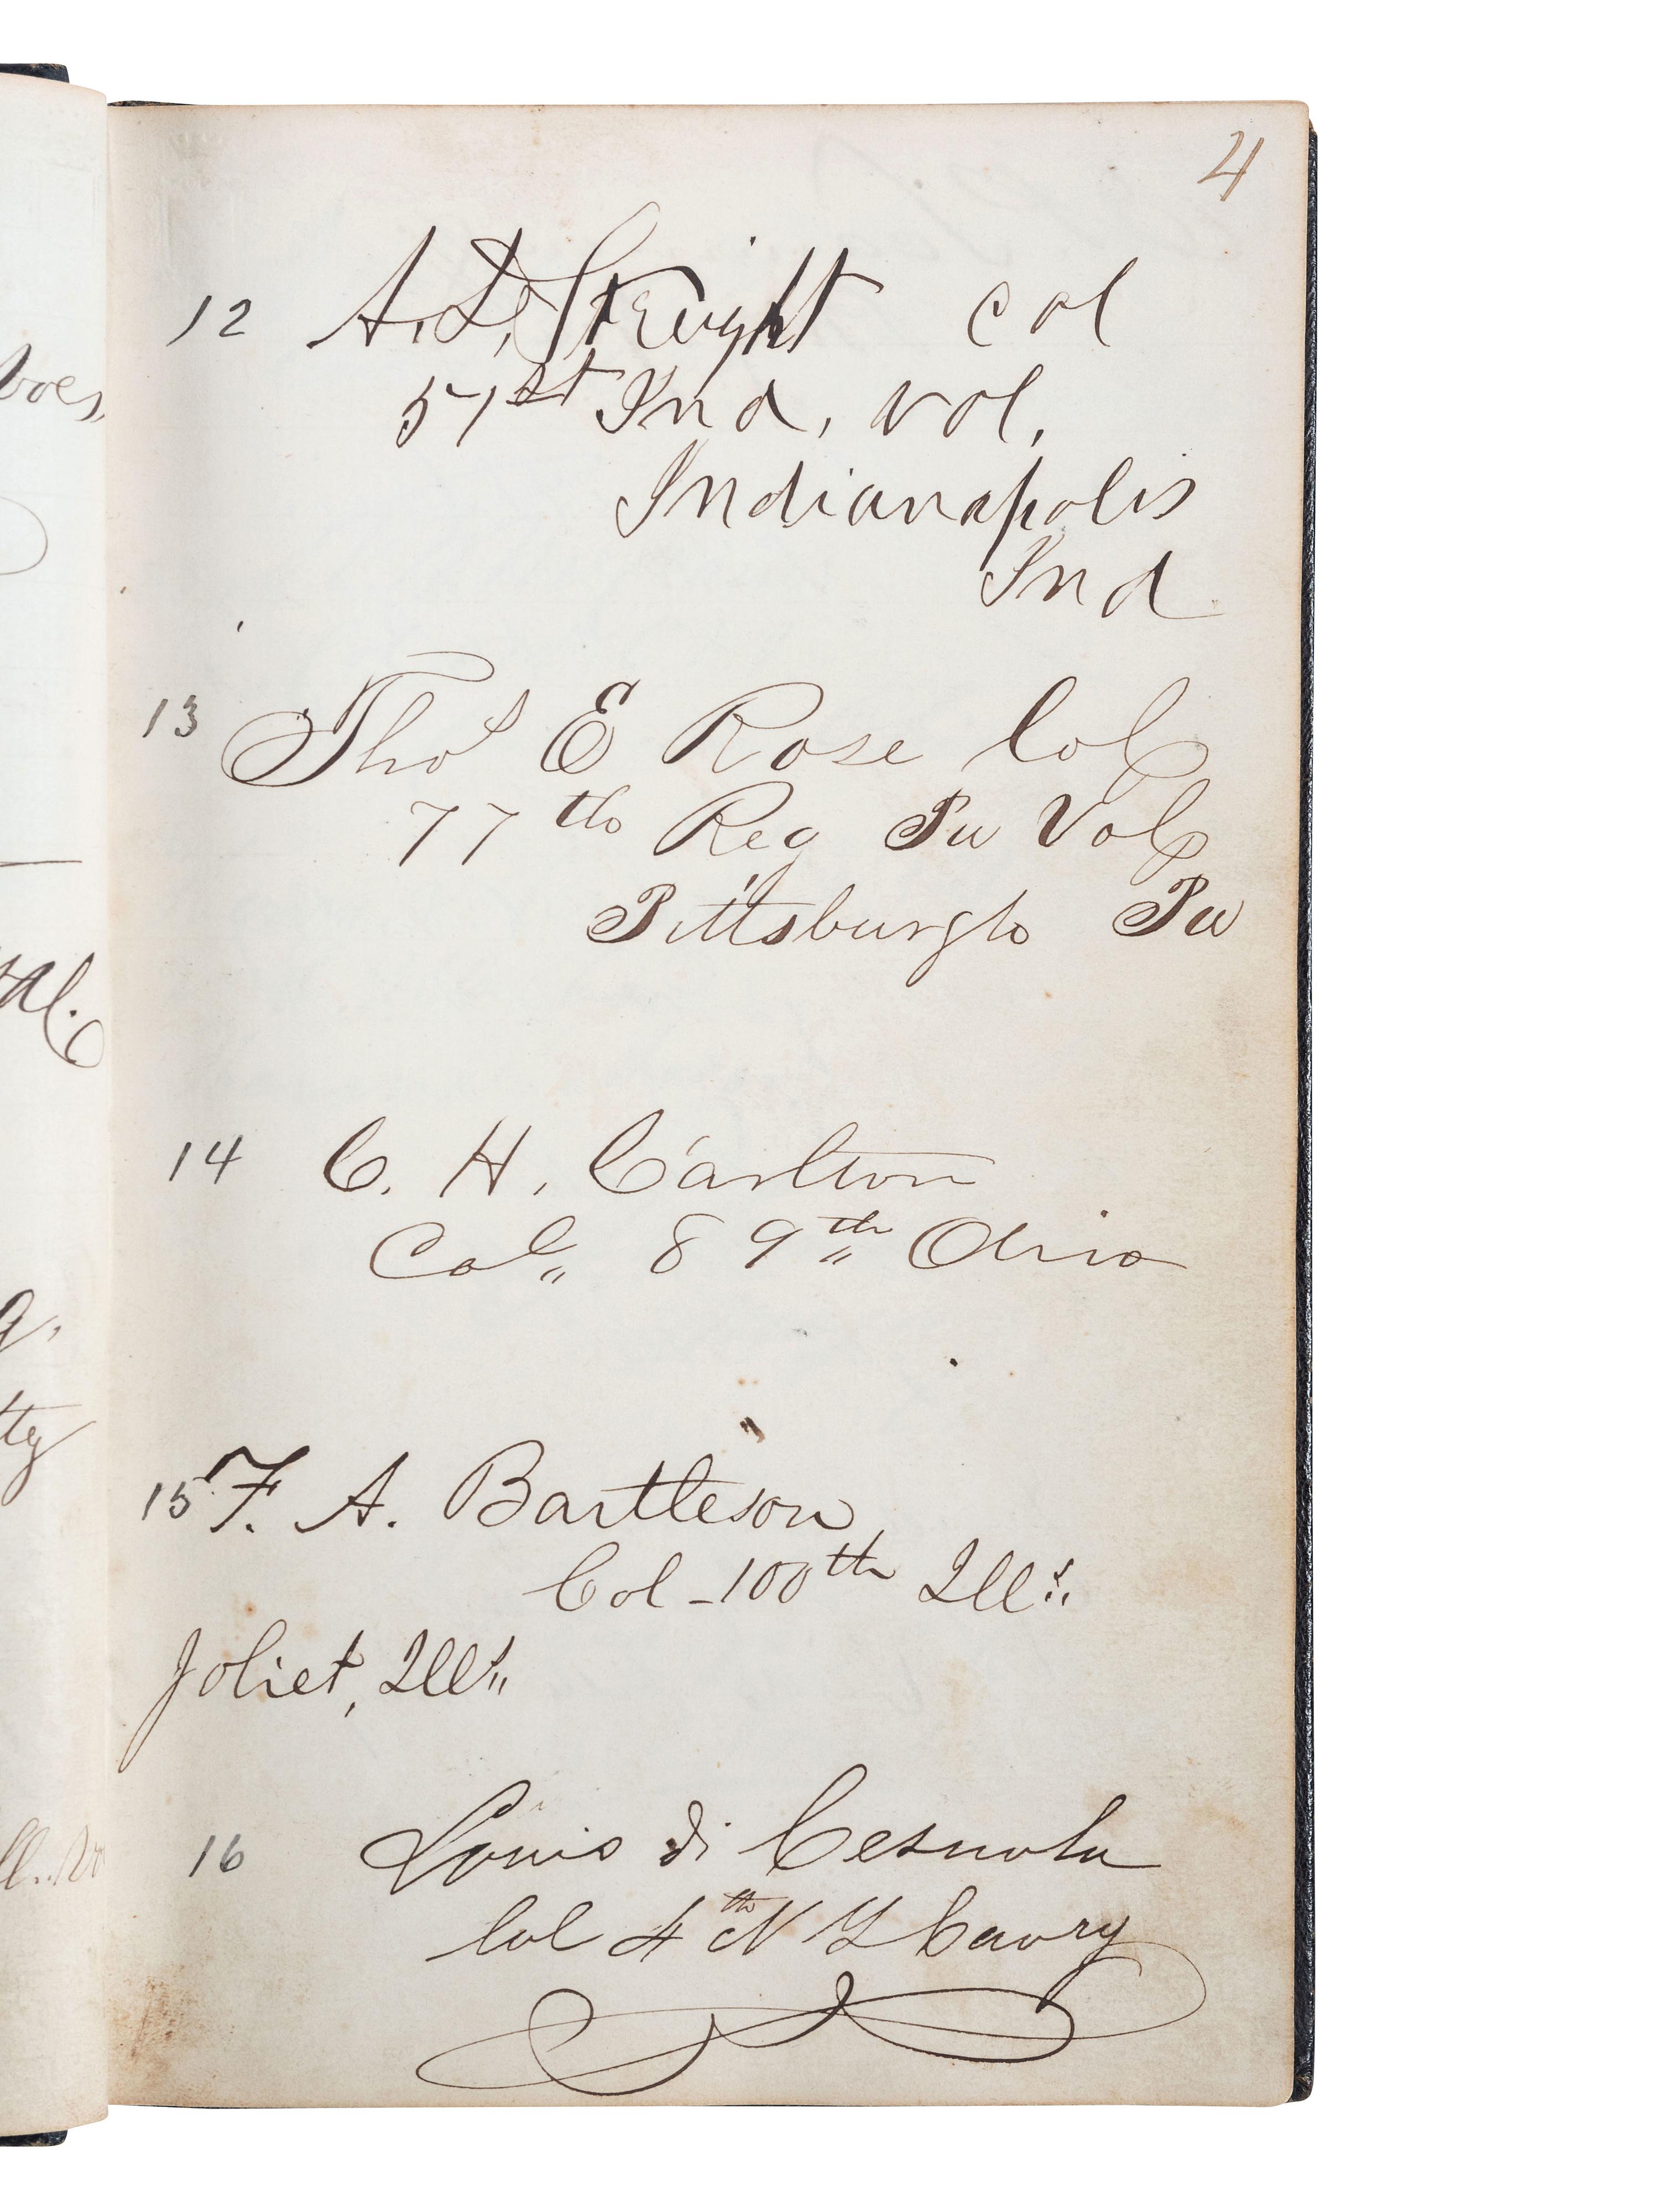 4
12 A. D. Streight Col
51st Ind, vol,
Indianapolis
Ind
13 Thos E Rose Col
77th Reg Pa Vol
Pittsburgh Pa
14 C. H. Carlton
Col 89th Ohio
15 F. A. Bartleson,
Col - 100th Ills
Joliet, Ills
16 Louis di Cesnola
Col 4th N Y Cavry